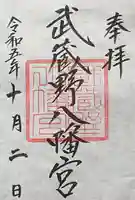 奉拝
武蔵野八幡宮
令和五年十月二日